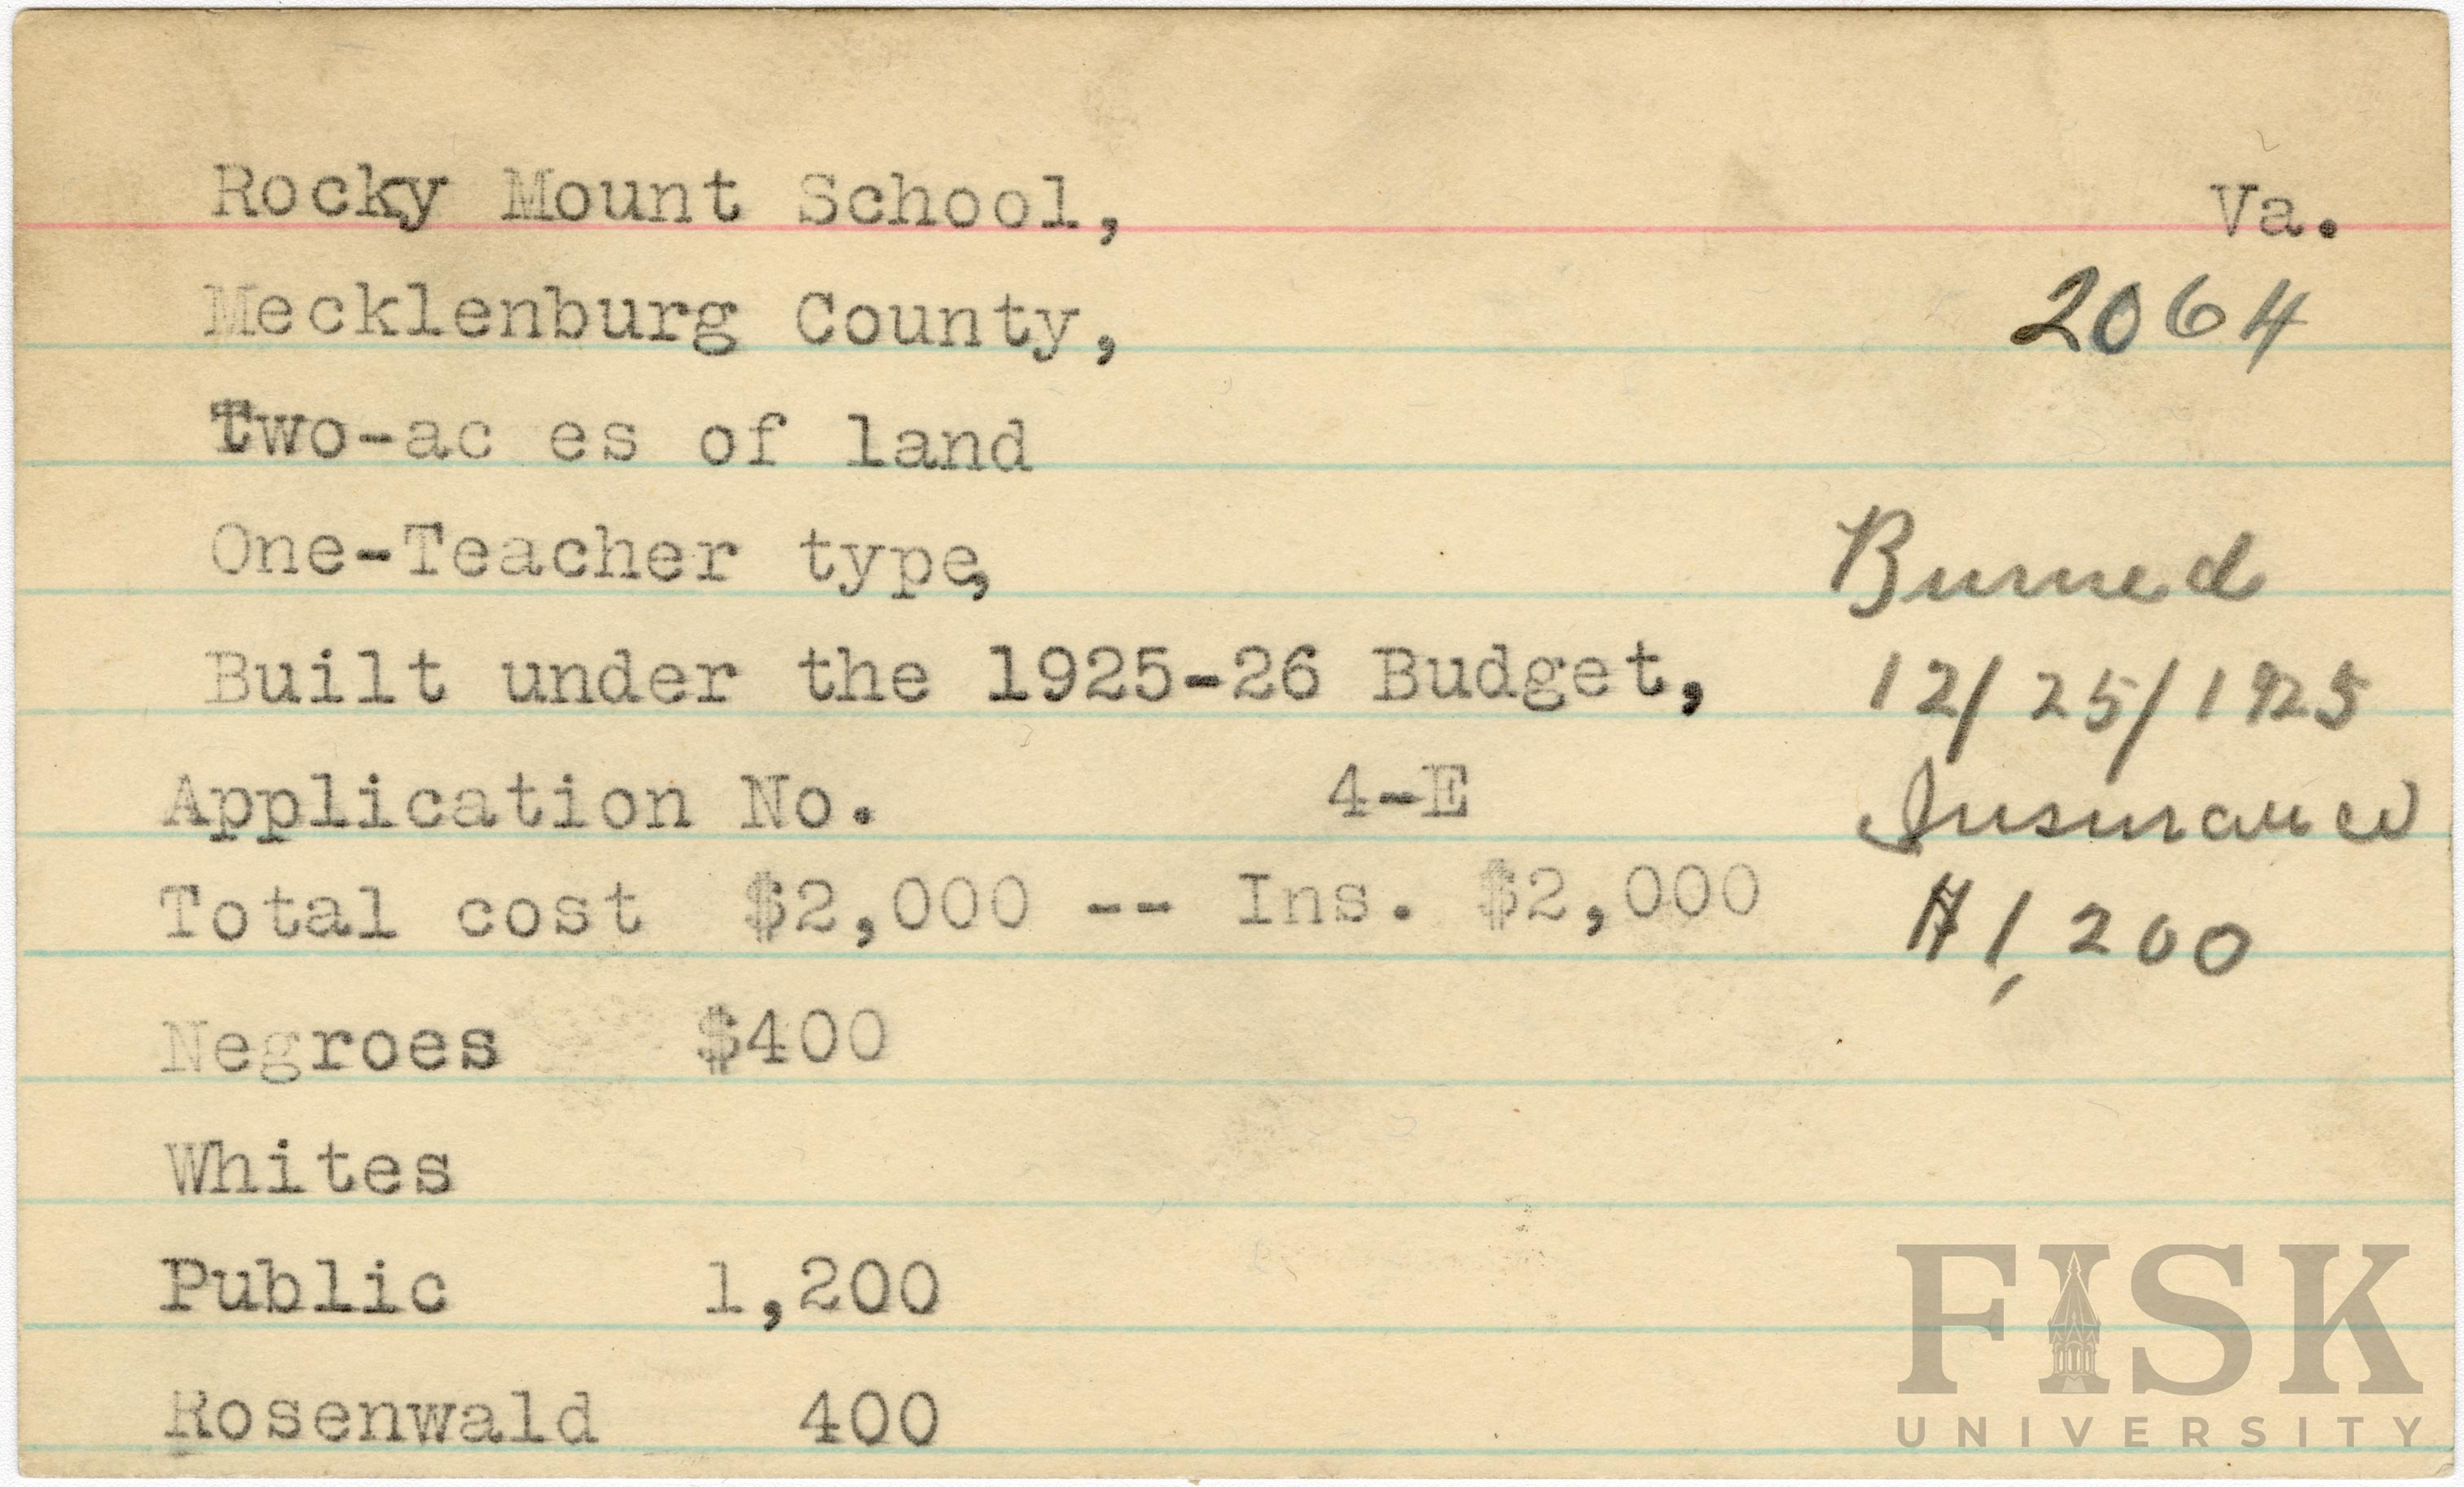 Rocky Mount School,
Va.
Mecklenburg County,
2064
Two-ac es of land
One-Teacher type,
Burned
Built under the 1925-26 Budget,
12/25/1925
Application No. 4-E
Insurance
Total cost $2,000 -- Ins. $2,000
$1,200
Negroes $400
Whites
Public 1,200
Rosenwald 400
FISK
UNIVERSITY